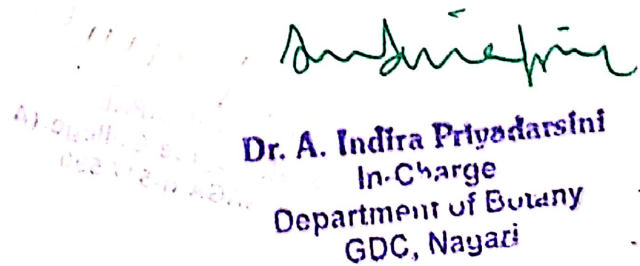 Dr. A. Indira Priyadarsini
In-Charge
Department of Botany
GDC, Nagari